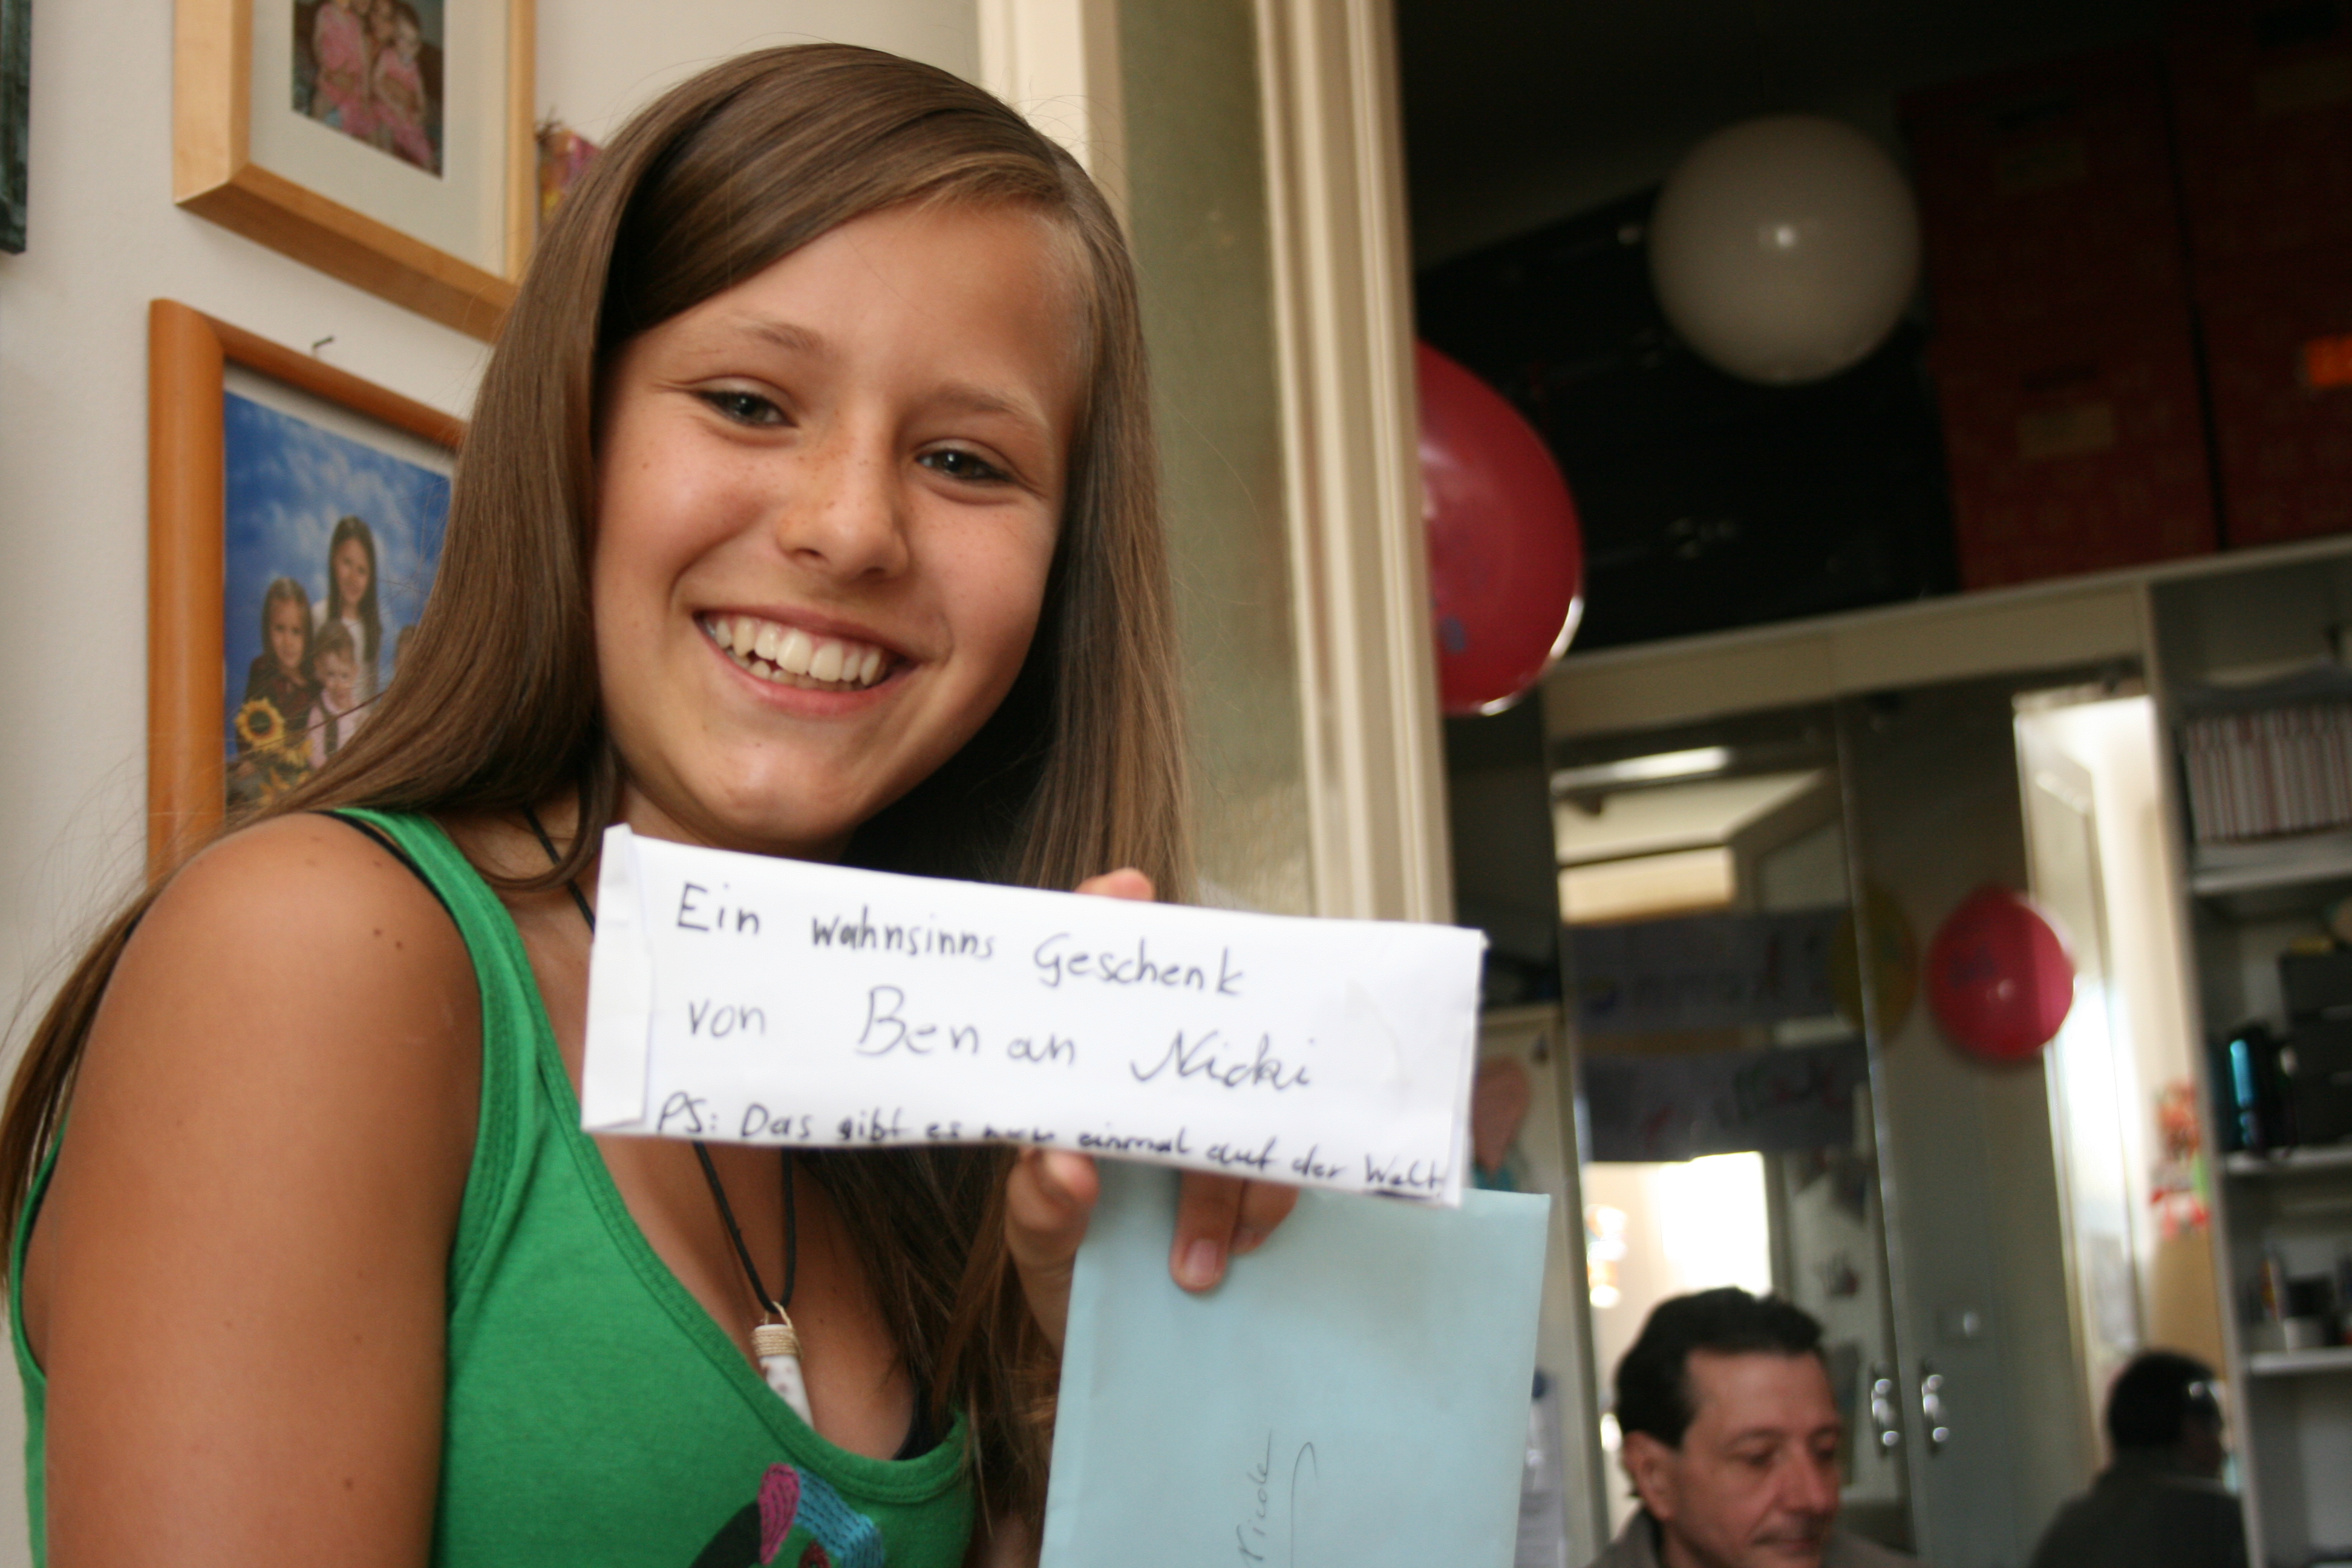 Ein wahnsinns Geschenk
von Ben an Nicki
PS: Das gibt es nur einmal auf der Welt!